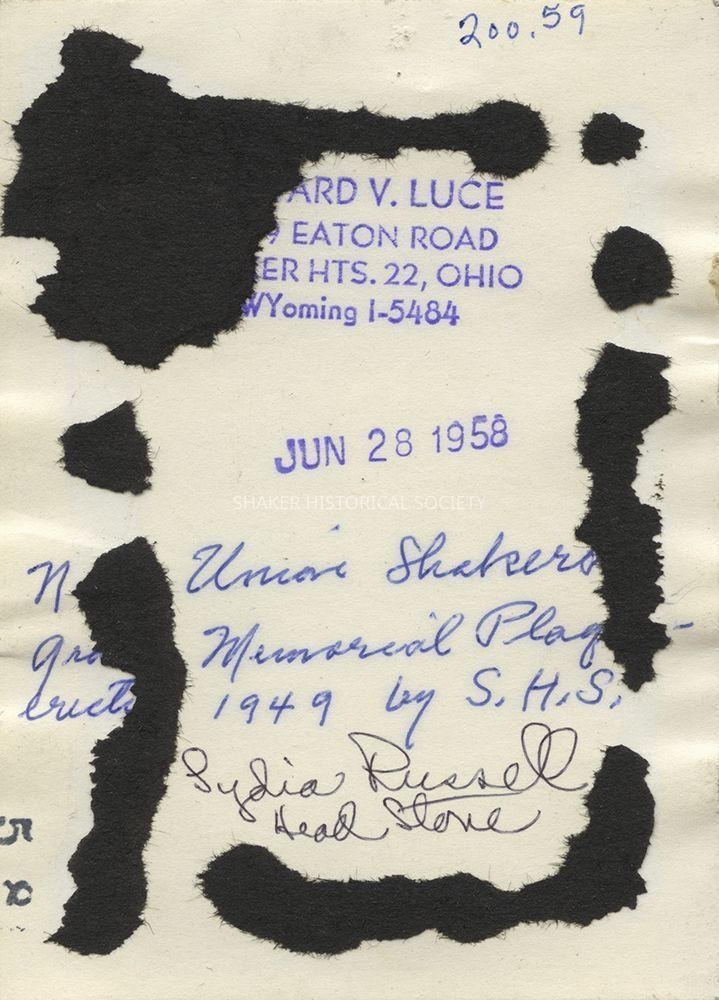 200.59
ARD V. LUCE
9 EATON ROAD
ER HTS. 22, OHIO
WYoming 1-5484
JUN 28 1958
SHAKER HISTORICAL SOCIETY
N Union Shakers
gra Memorial Plaq -
erect 1949 by S.H.S.
Lydia Russell
Head Stone